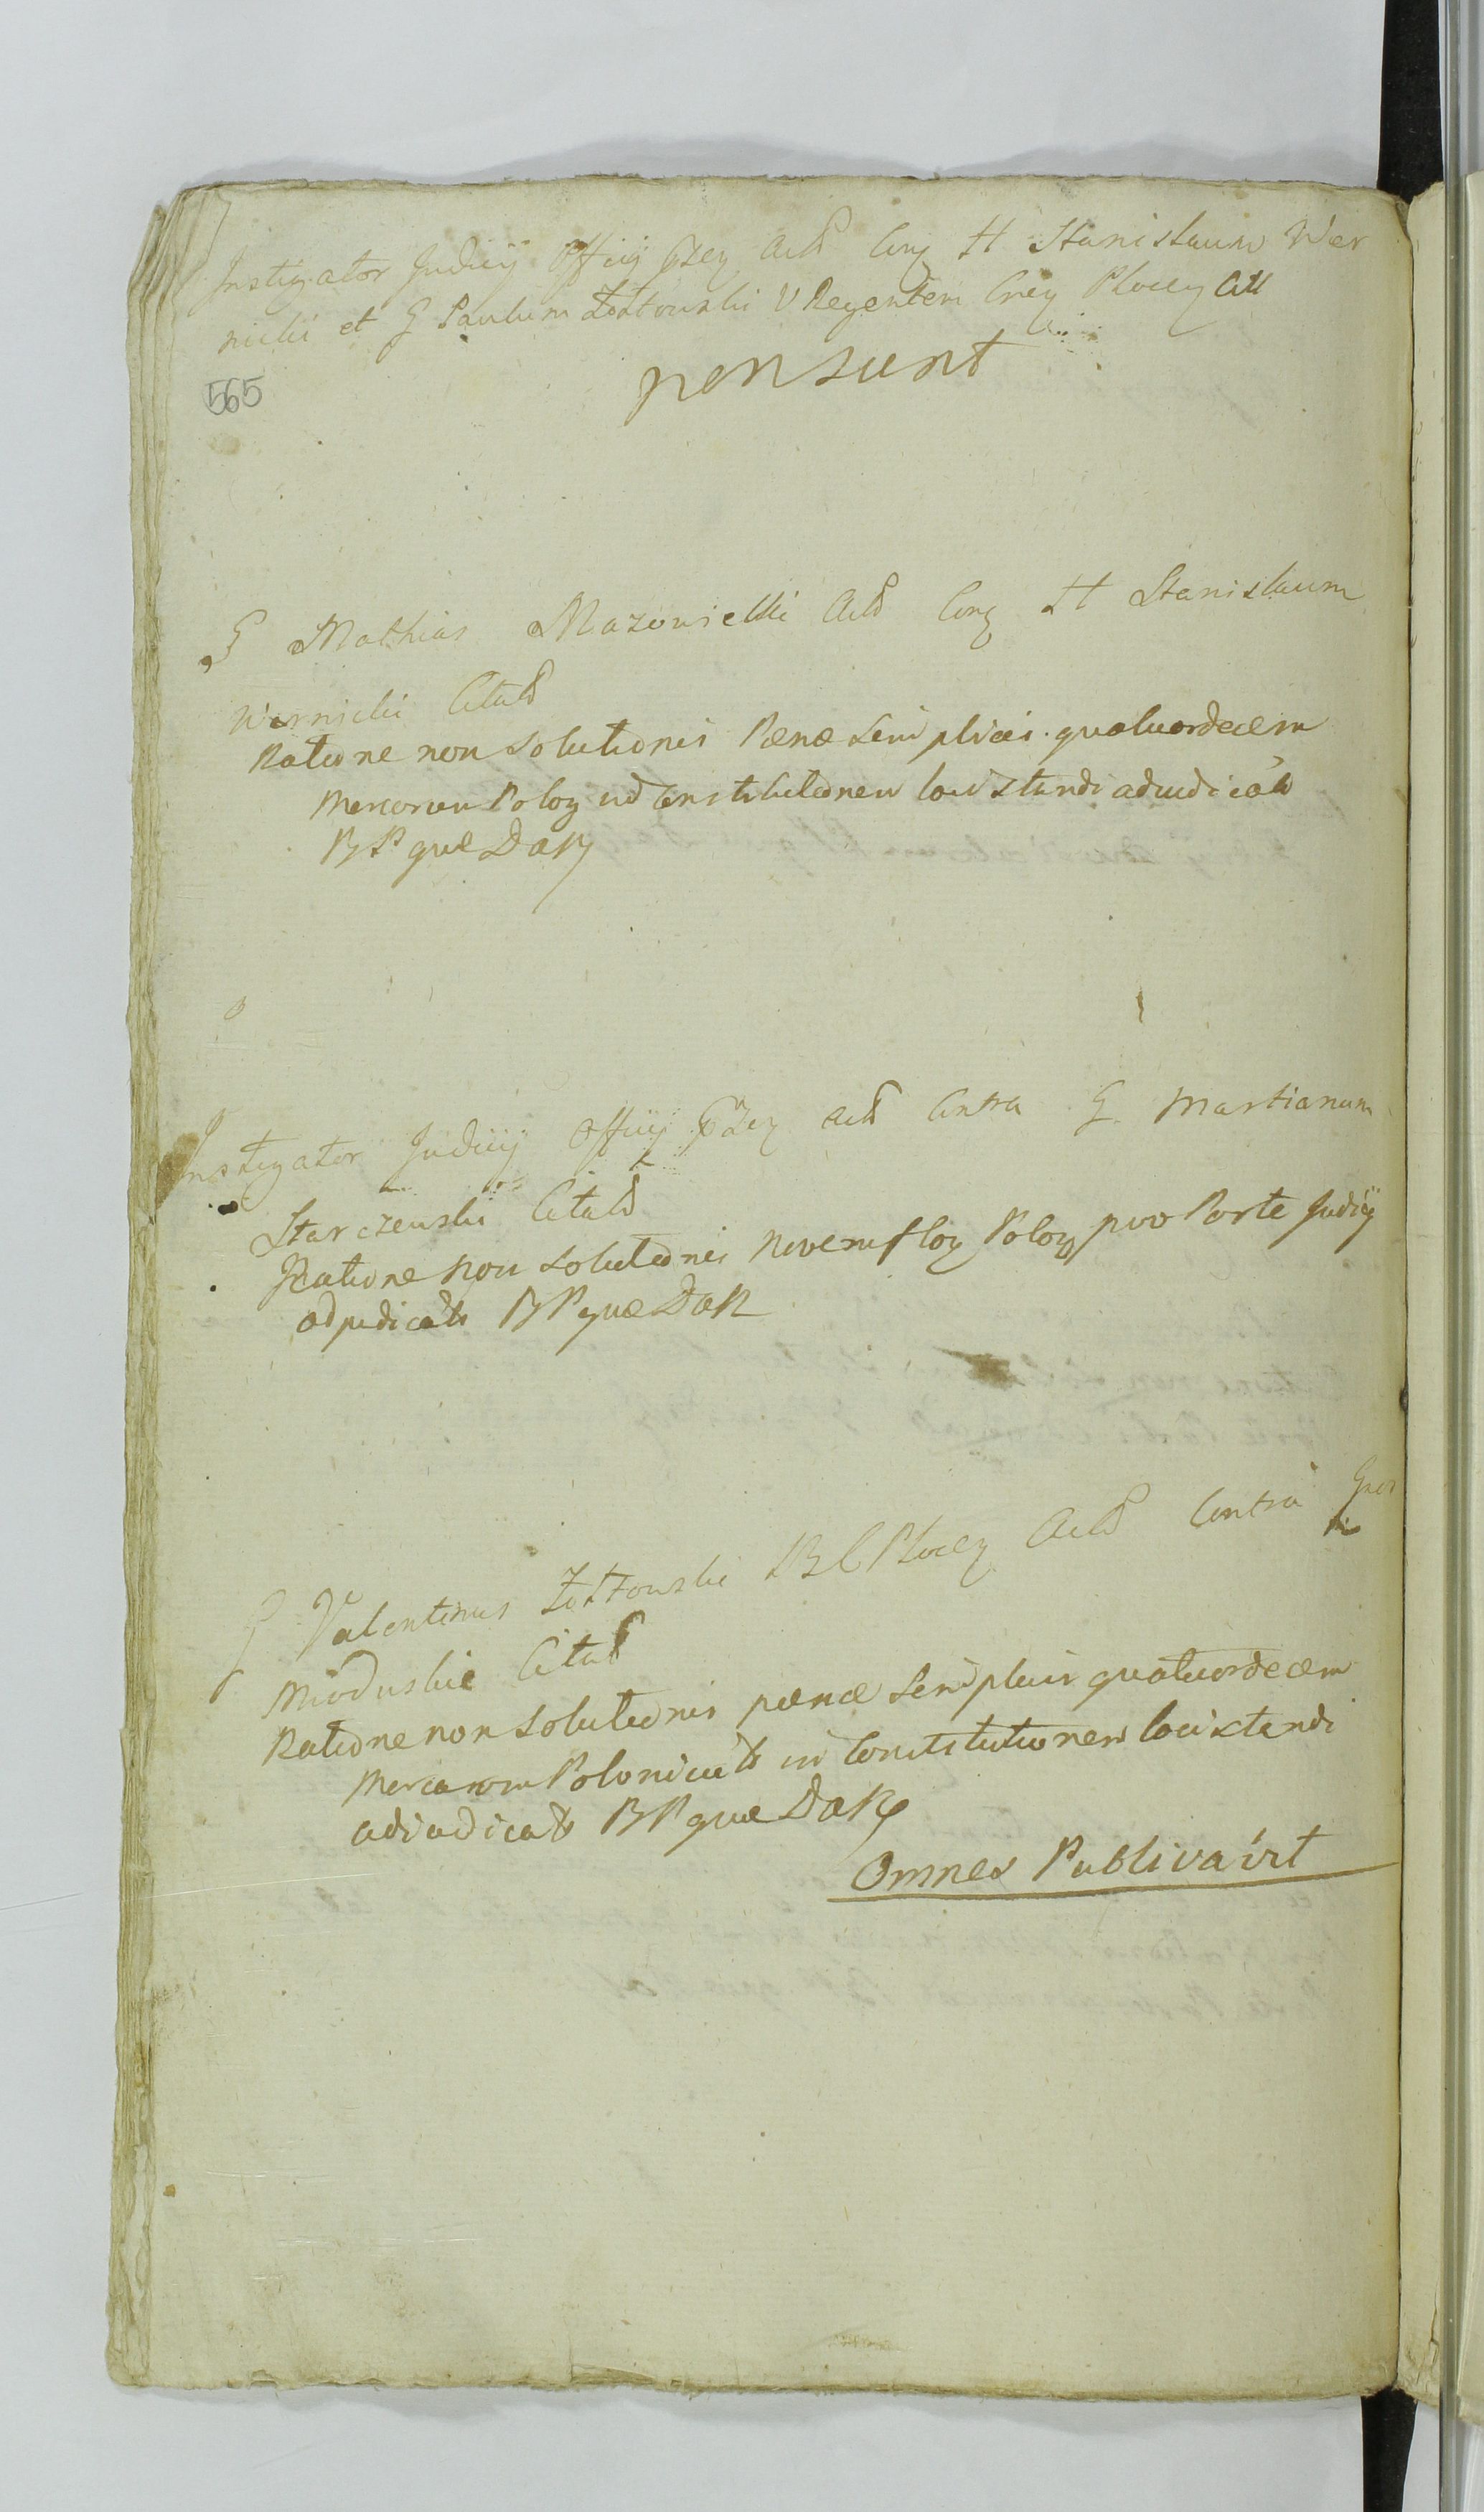 Instigator Judicij Officij Actt Con H Stanislaum Wer
nicki et G Paulum Żółtowski V Regentem Plocen Citt
565
pensunt
G Mathias Mazowiecki Actt Con H Stanislaum
Wernicki Citatt
Ratione non Solutionis Pænæ Simplicis quatuordecem
Mercarum Polon in Constitutionem loci Standi adiudicatt
BP quæ DaR
Instigator Judicij Officij Actt Contra G Martianum
Starczewski Citatt
Ratione non Solutionis Novem flor Polon pro Parte Judicij
adjudicatt BP quæ DaR
G Valentinus Żółtowski Plocen Actt Contra Gnos
Mioduskie Citatt
Ratione non Solutionis pænæ Simplicis quatuordecem
Mercarum Polonicatt in Constitutionem loci standi
adiudicatt BP quæ DaR
Omnes Publicavit